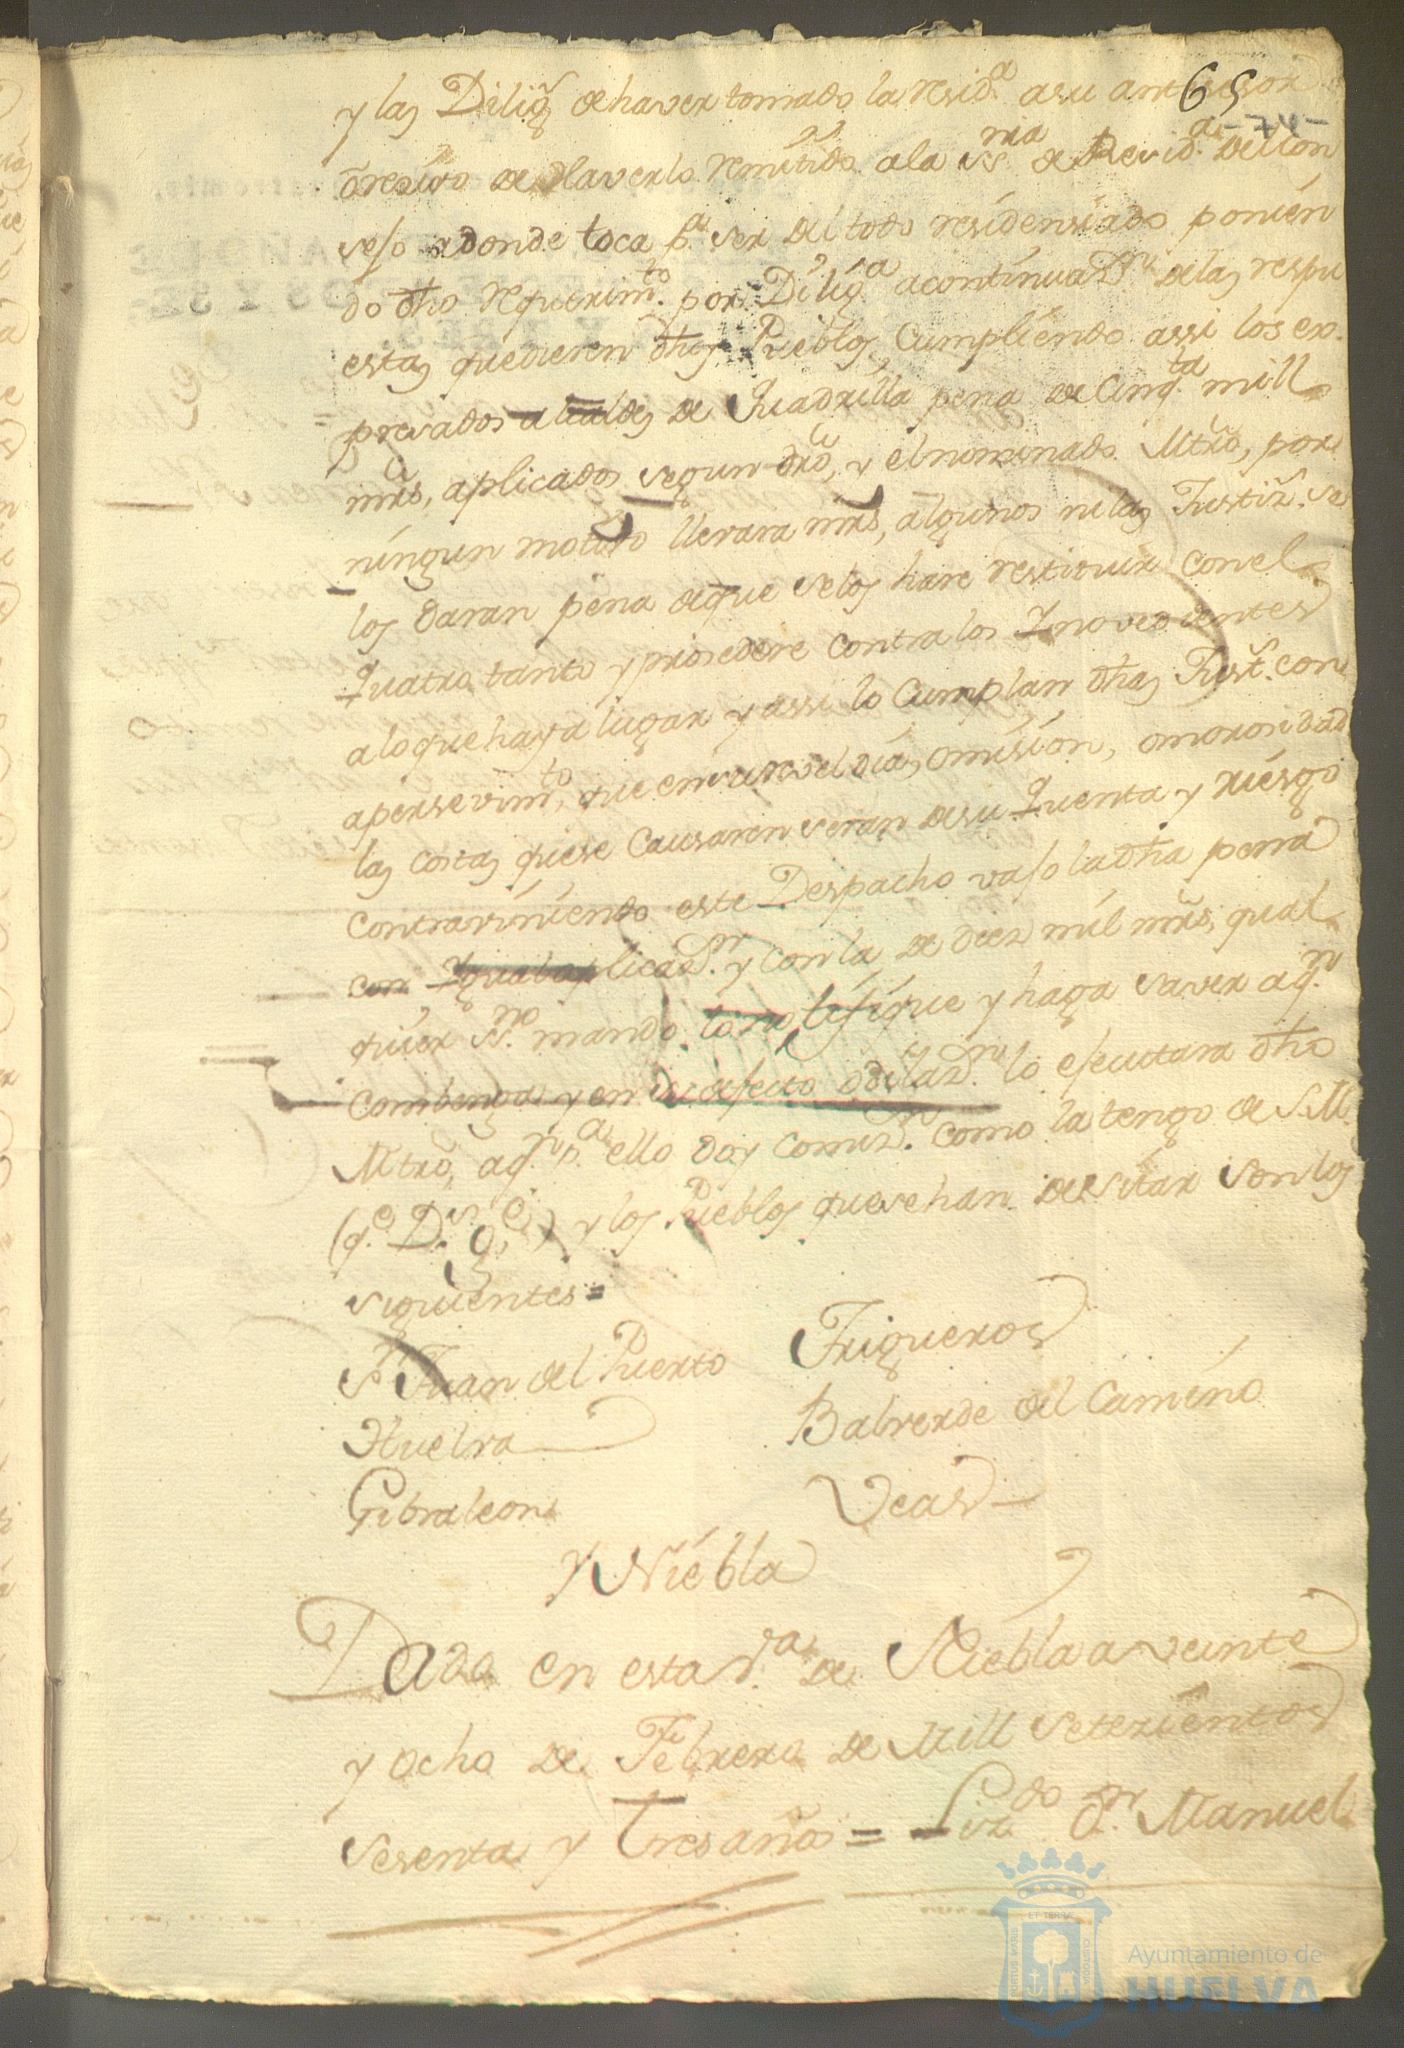 65
-74-
y las Diligˢ de haver tomado la residª a su antesesor
o resivo de Haverlo remitido a la Sʳⁱᵃ de Residª del Con
sejo adonde toca pª ser del todo residensiado ponien
do dho requerimᵗᵒ por Diligª a continuazⁿ de las respu
estas que dieren dhos Pueblos, Cumpliendo assi los ex-
presados alcaldes de Quadrilla pena de Cinqᵗᵃ mill
mrs, aplicados segun dro, y el nominado Mtro, por
ningun motivo llevara mrs, algunos ni las Justizˢ se
los daran pena de que se los hare restituir con el
Quatro tanto y prosedere contra los Ynovedientes
a lo que haya lugar y assi lo Cumplan dhas Justˢ con
apersevimᵗᵒ, que en su reveldia, omision, o morosidad
las costas que se Causaren seran de su Quenta y riesgo
contraviniendo este Despacho vajo la dha pena
con Ygual aplicazⁿ y con la de diez mil mrs, qual
quier Sⁿᵒ mando lo notifique y haga saver a qⁿ
combenga y en su defecto o dilazⁿ lo ejecutara dho
Mtro, a qⁿ pª ello doy comizⁿ como la tengo de S.M.
(qᵉ Dˢ gᵉ) y los Pueblos que se han de visitar son los
siguientes=
Sⁿ Juan del Puerto Trigueros
Huelva Balverde del Camino
Gibraleon Veas
Y Niebla
Dado en esta Vª de Niebla a veinte
y ocho de Febrero de Mill Setezientos
Sesenta y tres años = Lizᵈᵒ Dⁿ Manuel
ET TERRAE
Ayuntamiento de
HUELVA